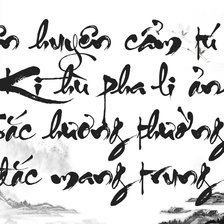 ên huyên cẩm tú
Kỉ hủ pha li ản
Sắc hương thường
đắc mang trung